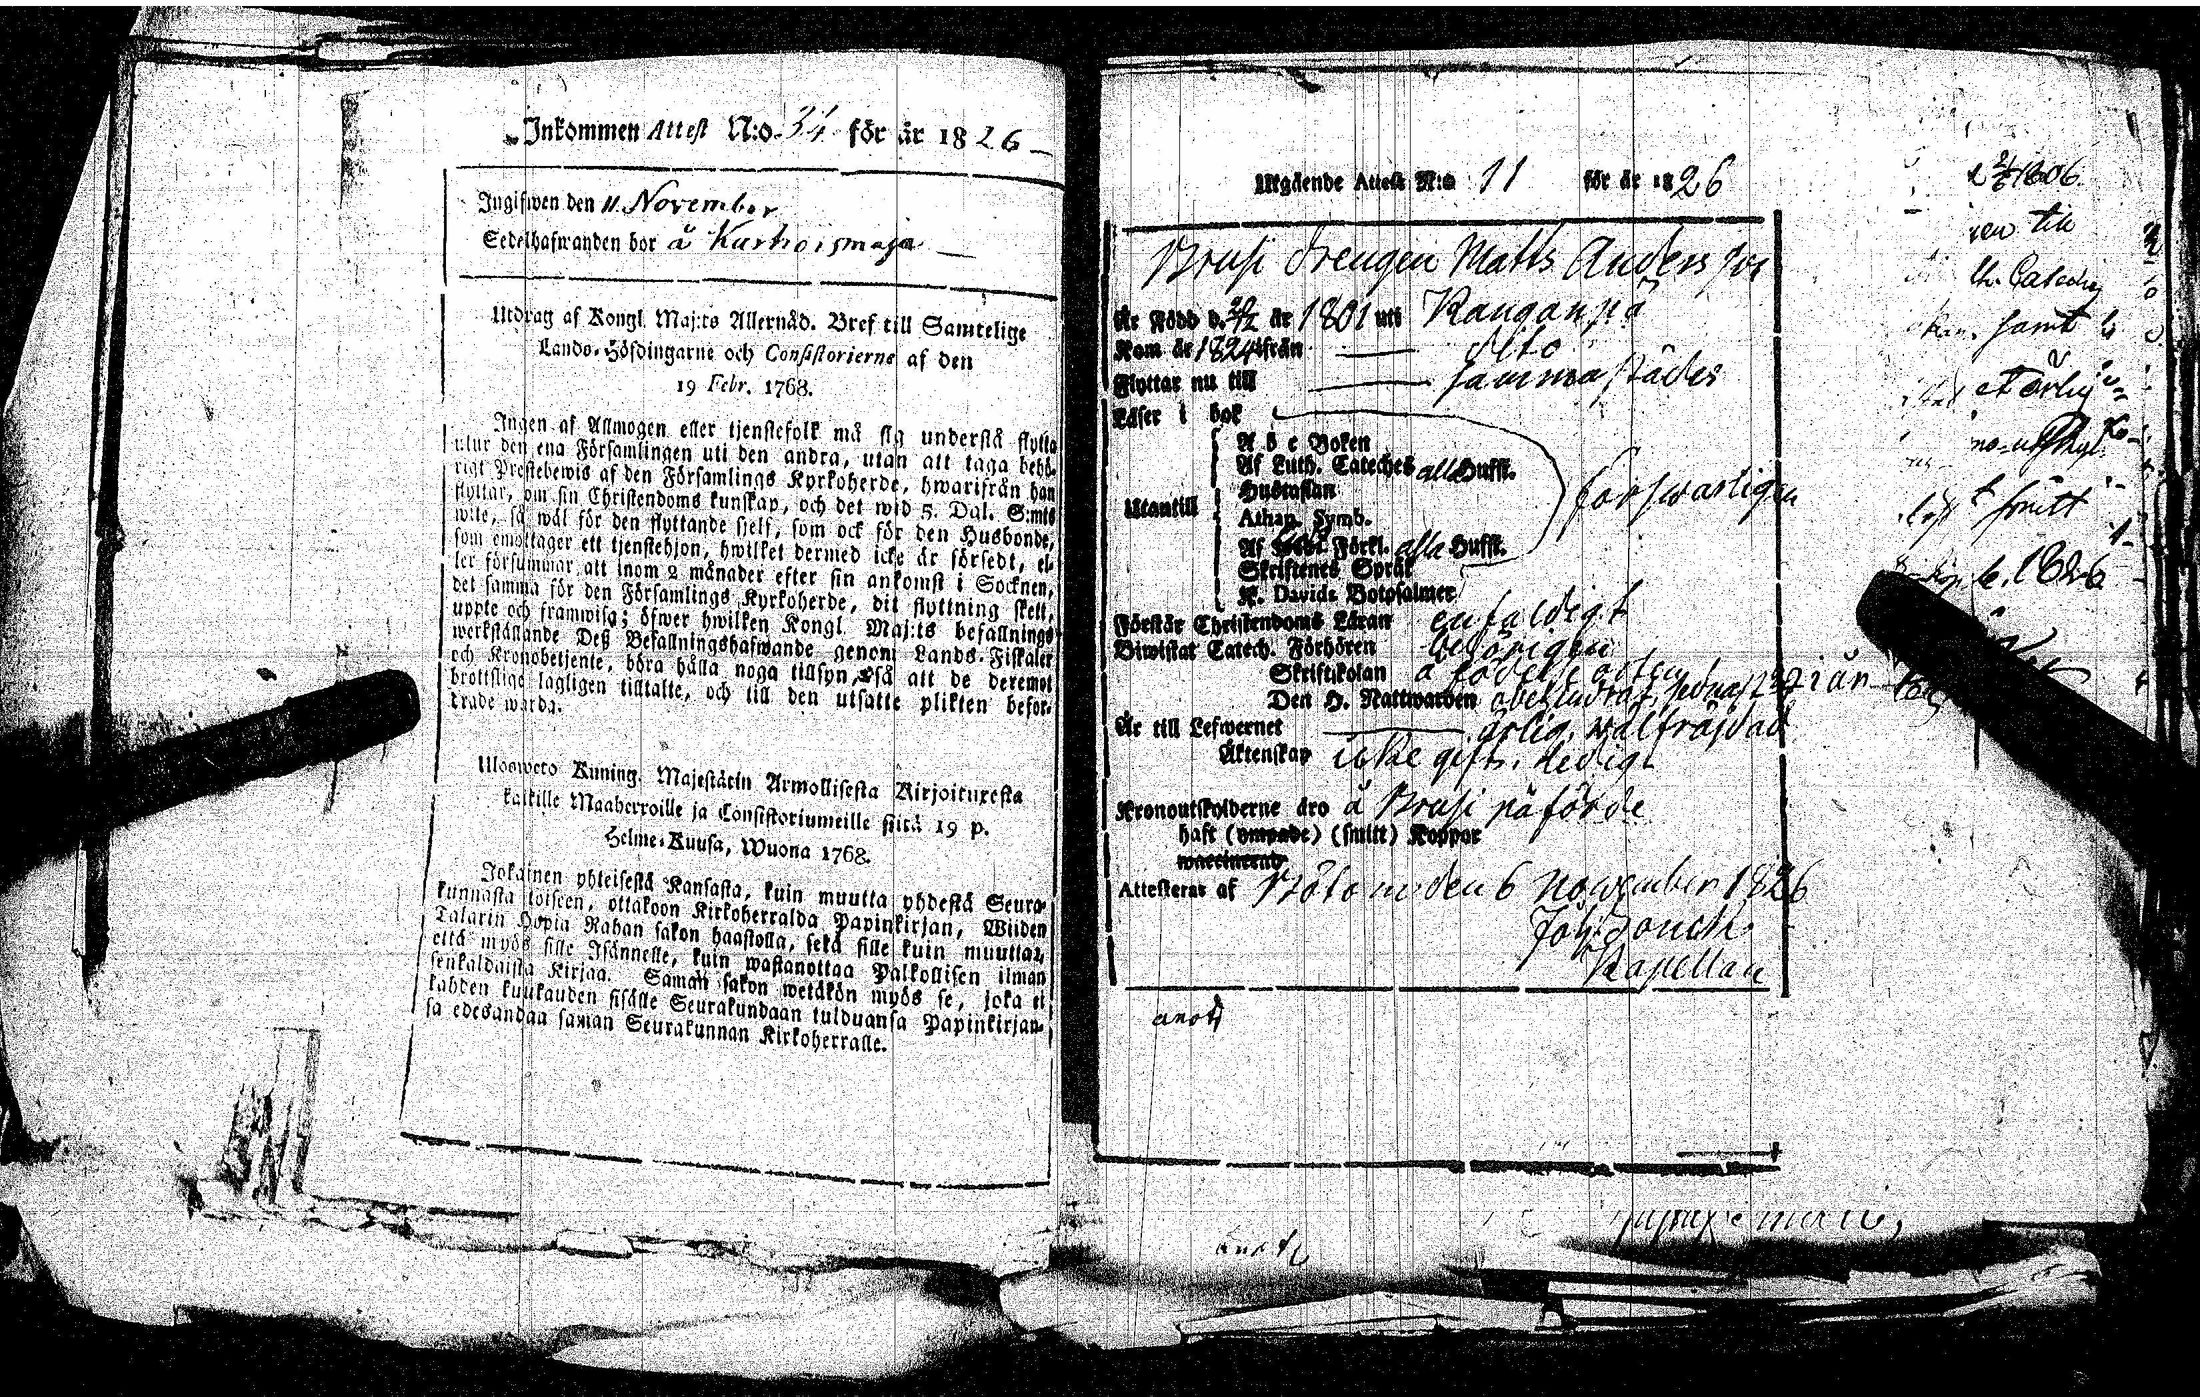 Inkommen Attest N:o 34 för år 1826
Ingifwen den 11 November
Sedelhafwanden bor å
Utdrag af Kongl. Maj:ts Allernåd. Bref till Samtelige
Lands-Höfdingarne och Consistorierne af den
19 Febr. 1768.
Ingen af Allmogen eller tjenstefolk må sig understå flytta
utur den ena Församlingen uti den andra, utan att taga behö-
rigt Prestebewis af den Församlings Kyrkoherde, hwarifrån han
flyttar, om sin Christendoms kunskap, och det wid 5. Dal. S:mts
wite, så wäl för den flyttande sjelf, som ock för den Husbonde,
som emottager ett tjenstehjon, hwilket dermed icke är försedt, el-
ler försummar att inom 2 månader efter sin ankomst i Socknen,
det samma för den Församlings Kyrkoherde, dit flyttning skett,
uppte och framwisa; öfwer hwilken Kongl. Maj:ts befallnings
werkställande Deß Befallningshafwande genom Lands-Fiskaler
och Kronobetjente, böra hålla noga tillsyn, så att de deremot
brottslige lagligen tilltalte, och till den utsatte plikten befor-
drade warda.
Ulosweto Kuning. Majestätin Armollisesta Kirjoituxesta
kaikille Maaherroille ja Consistoriumeille siitä 19 p.
Helme-Kuusa, Wuona 1768.
Jokainen yhteisestä Kansasta, kuin muutta yhdestä Seura-
kunnasta toiseen, ottakoon Kirkoherralda Papinkirjan, Wiiden
Talarin Hopia Rahan sakon haastolla, sekä sille kuin muuttaa,
että myös sille Isännelle, kuin wastanottaa Palkollisen ilman
senkaldaista Kirjaa. Saman sakon wetäkön myös se, joka ei
kahden kuukauden sisälle Seurakundaan tulduansa Papinkirjan-
sa edesandaa saman Seurakunnan Kirkoherralle.
Utgående Attest N:o 11 för år 1826
Brusi drengen Matts Andersson
Är Född d. år 1801 uti Kauganpä
Kom år 1824 ifrån — dito
Flyttar nu till — sammastädes
Läser i bok
A b c Boken
Af Luth. Cateches alla Hufst.
Hustaflan
Utantill
försvarligen
Athan. Symb.
Af Förkl. alla Hufst.
Skriftenes Språk
K. Davids Botpsalmer
Förstår Christendoms Läran enfaldigt
Biwistat Catech. Förhören behörigen
Skriftskolan å födelse orten
Den H. Nattwarden obehindrat, sednast i år
Är till Lefwernet — ärlig, wälfräjdad
Äktenskap icke gift. Ledig
Kronoutskylderne äro å Brusi påförde
haft (ympade) (smitt) Koppor
waccinerad
Attesteras af Bötom den 6 November 1826
Kapellan
anott
1806.
til
samt
ärlig
1826